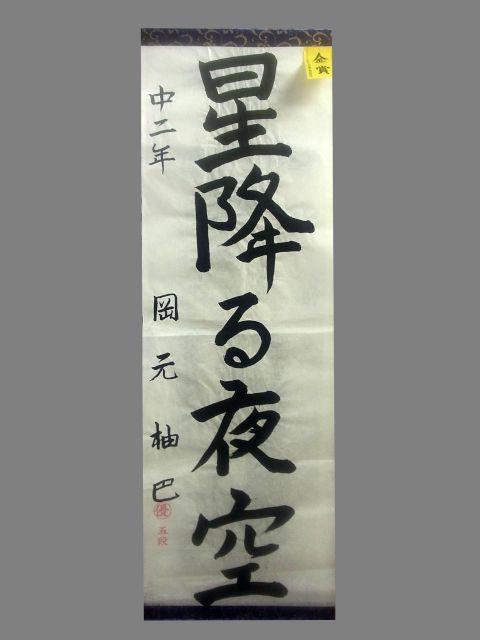 金賞
星降る夜空
中二年
岡元柚巴
優
五段